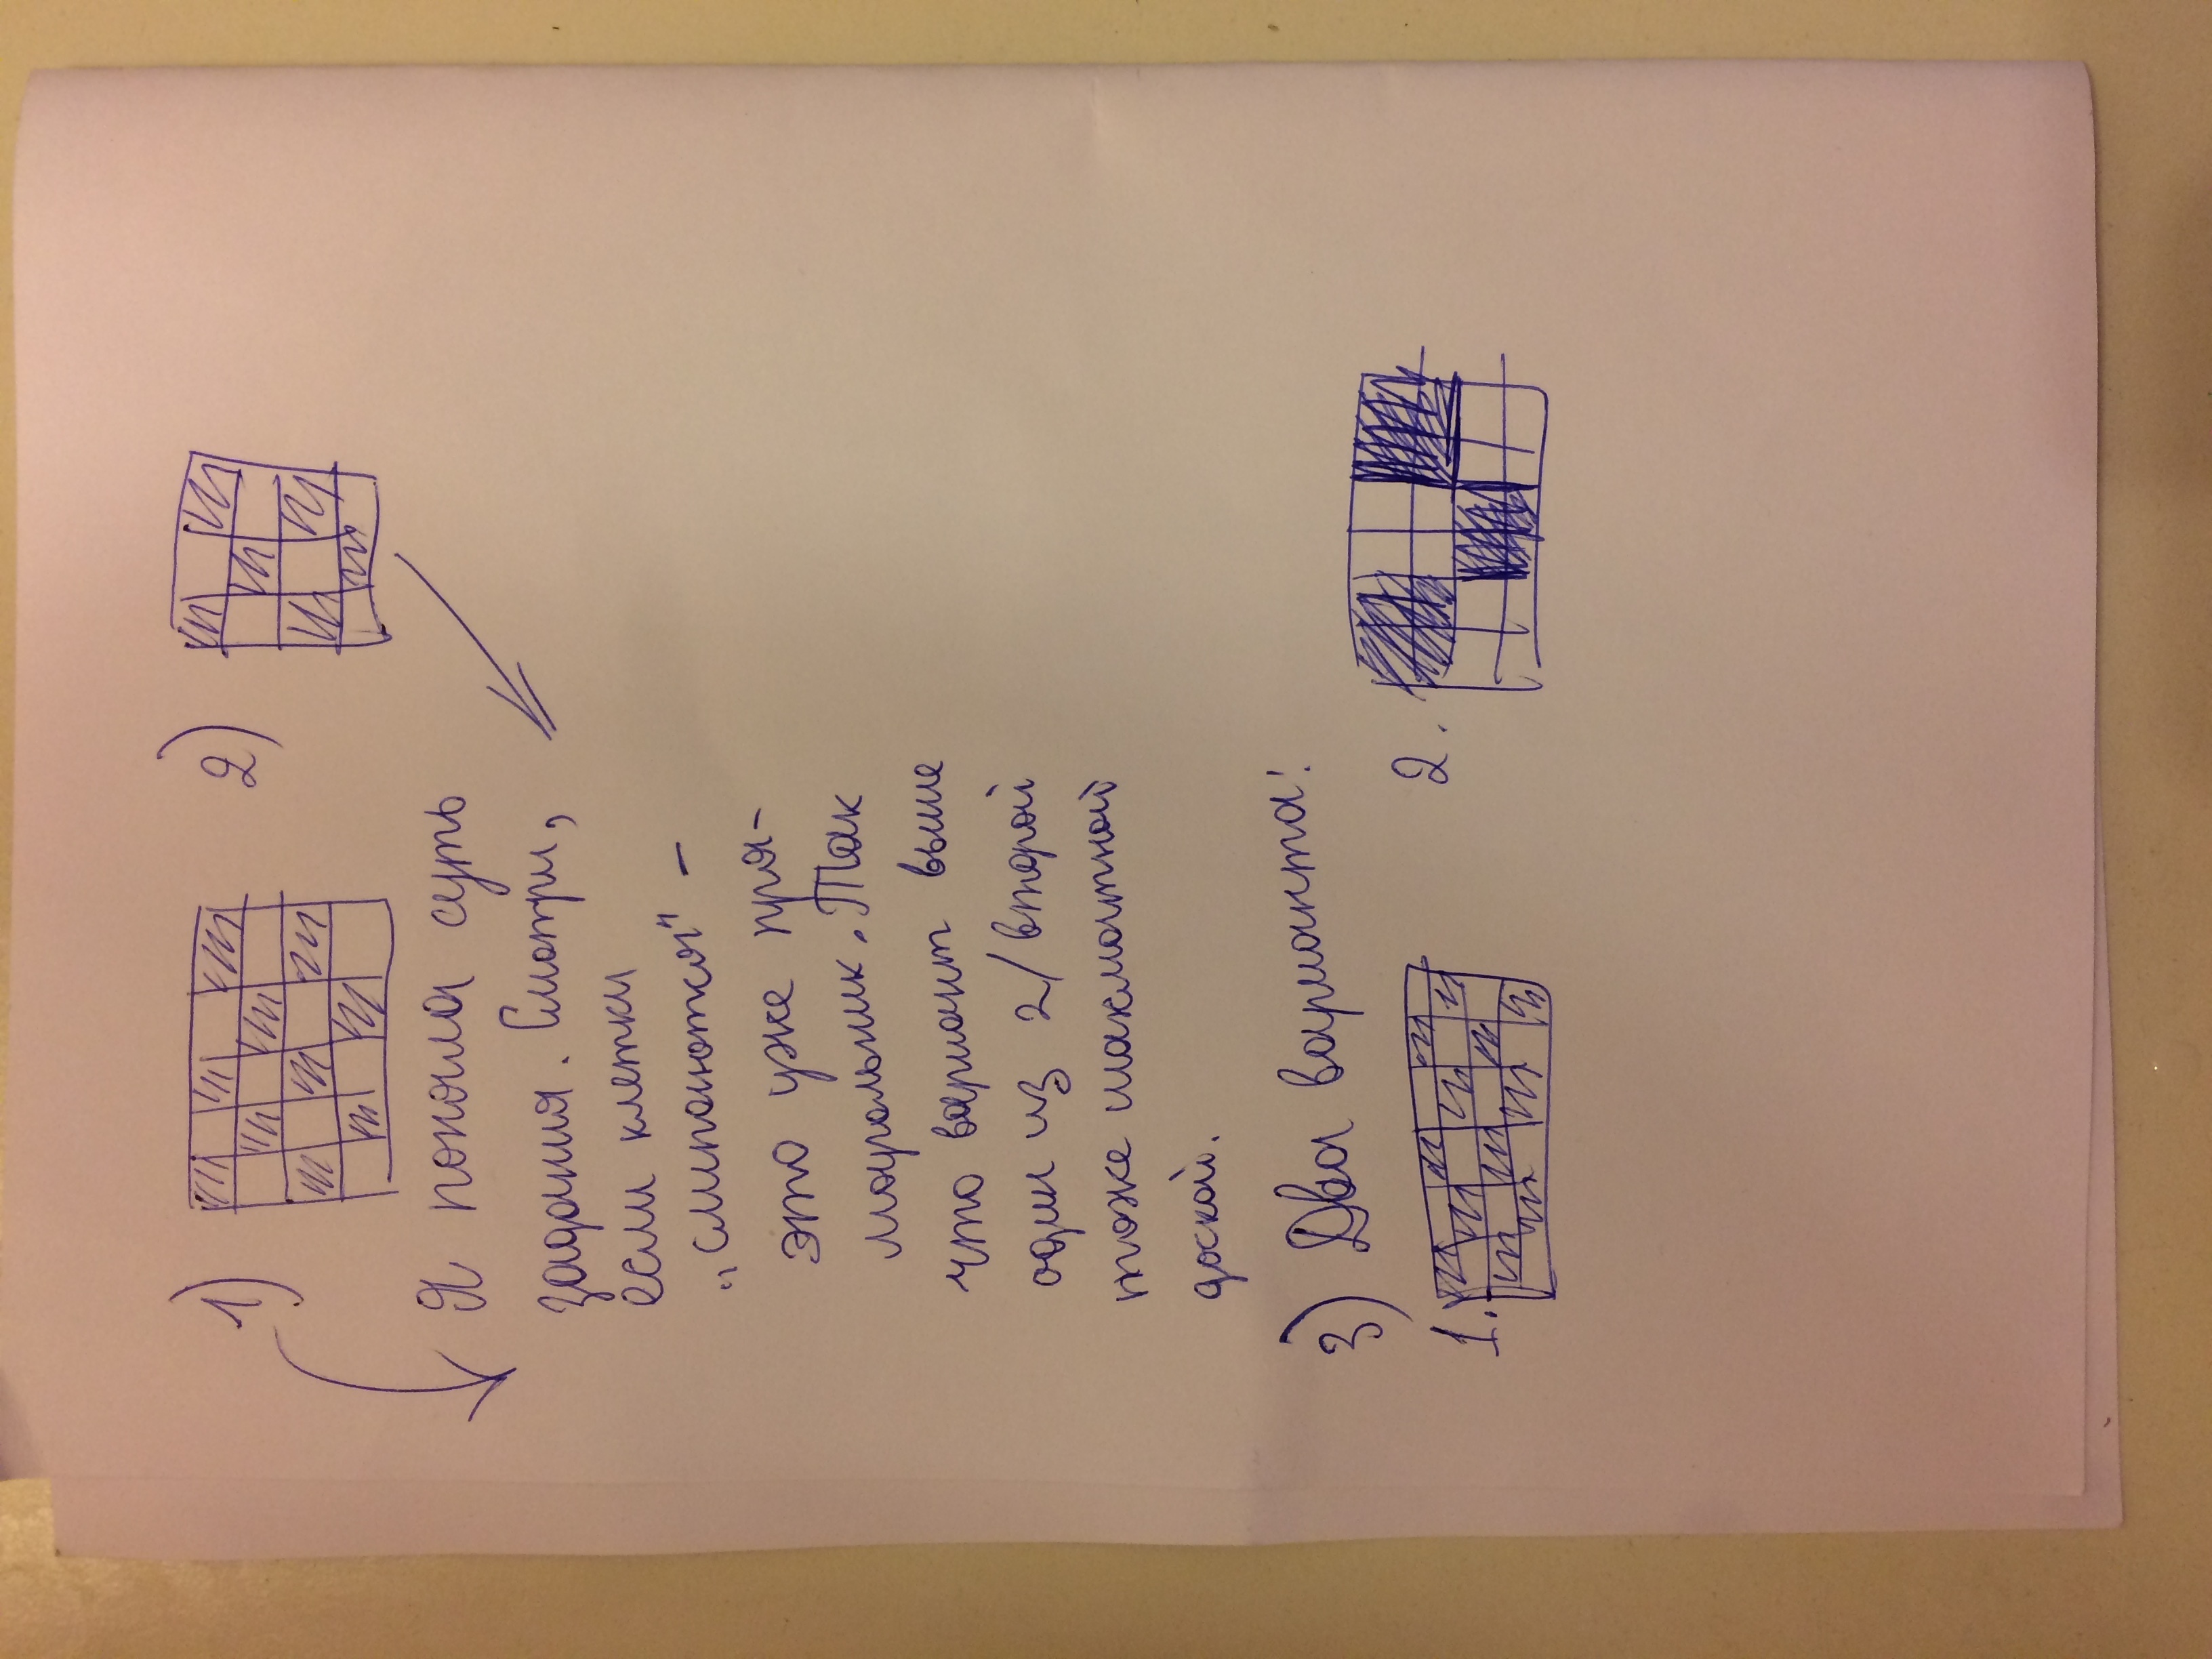 1) 2)
Я поняла суть
задания. Смотри,
если клетки
"слипаются" -
это уже пря-
моугольник. Так
что вариант выше
один из 2/второй
тоже шахматной
доской.
3) Два варианта!
1. 2.